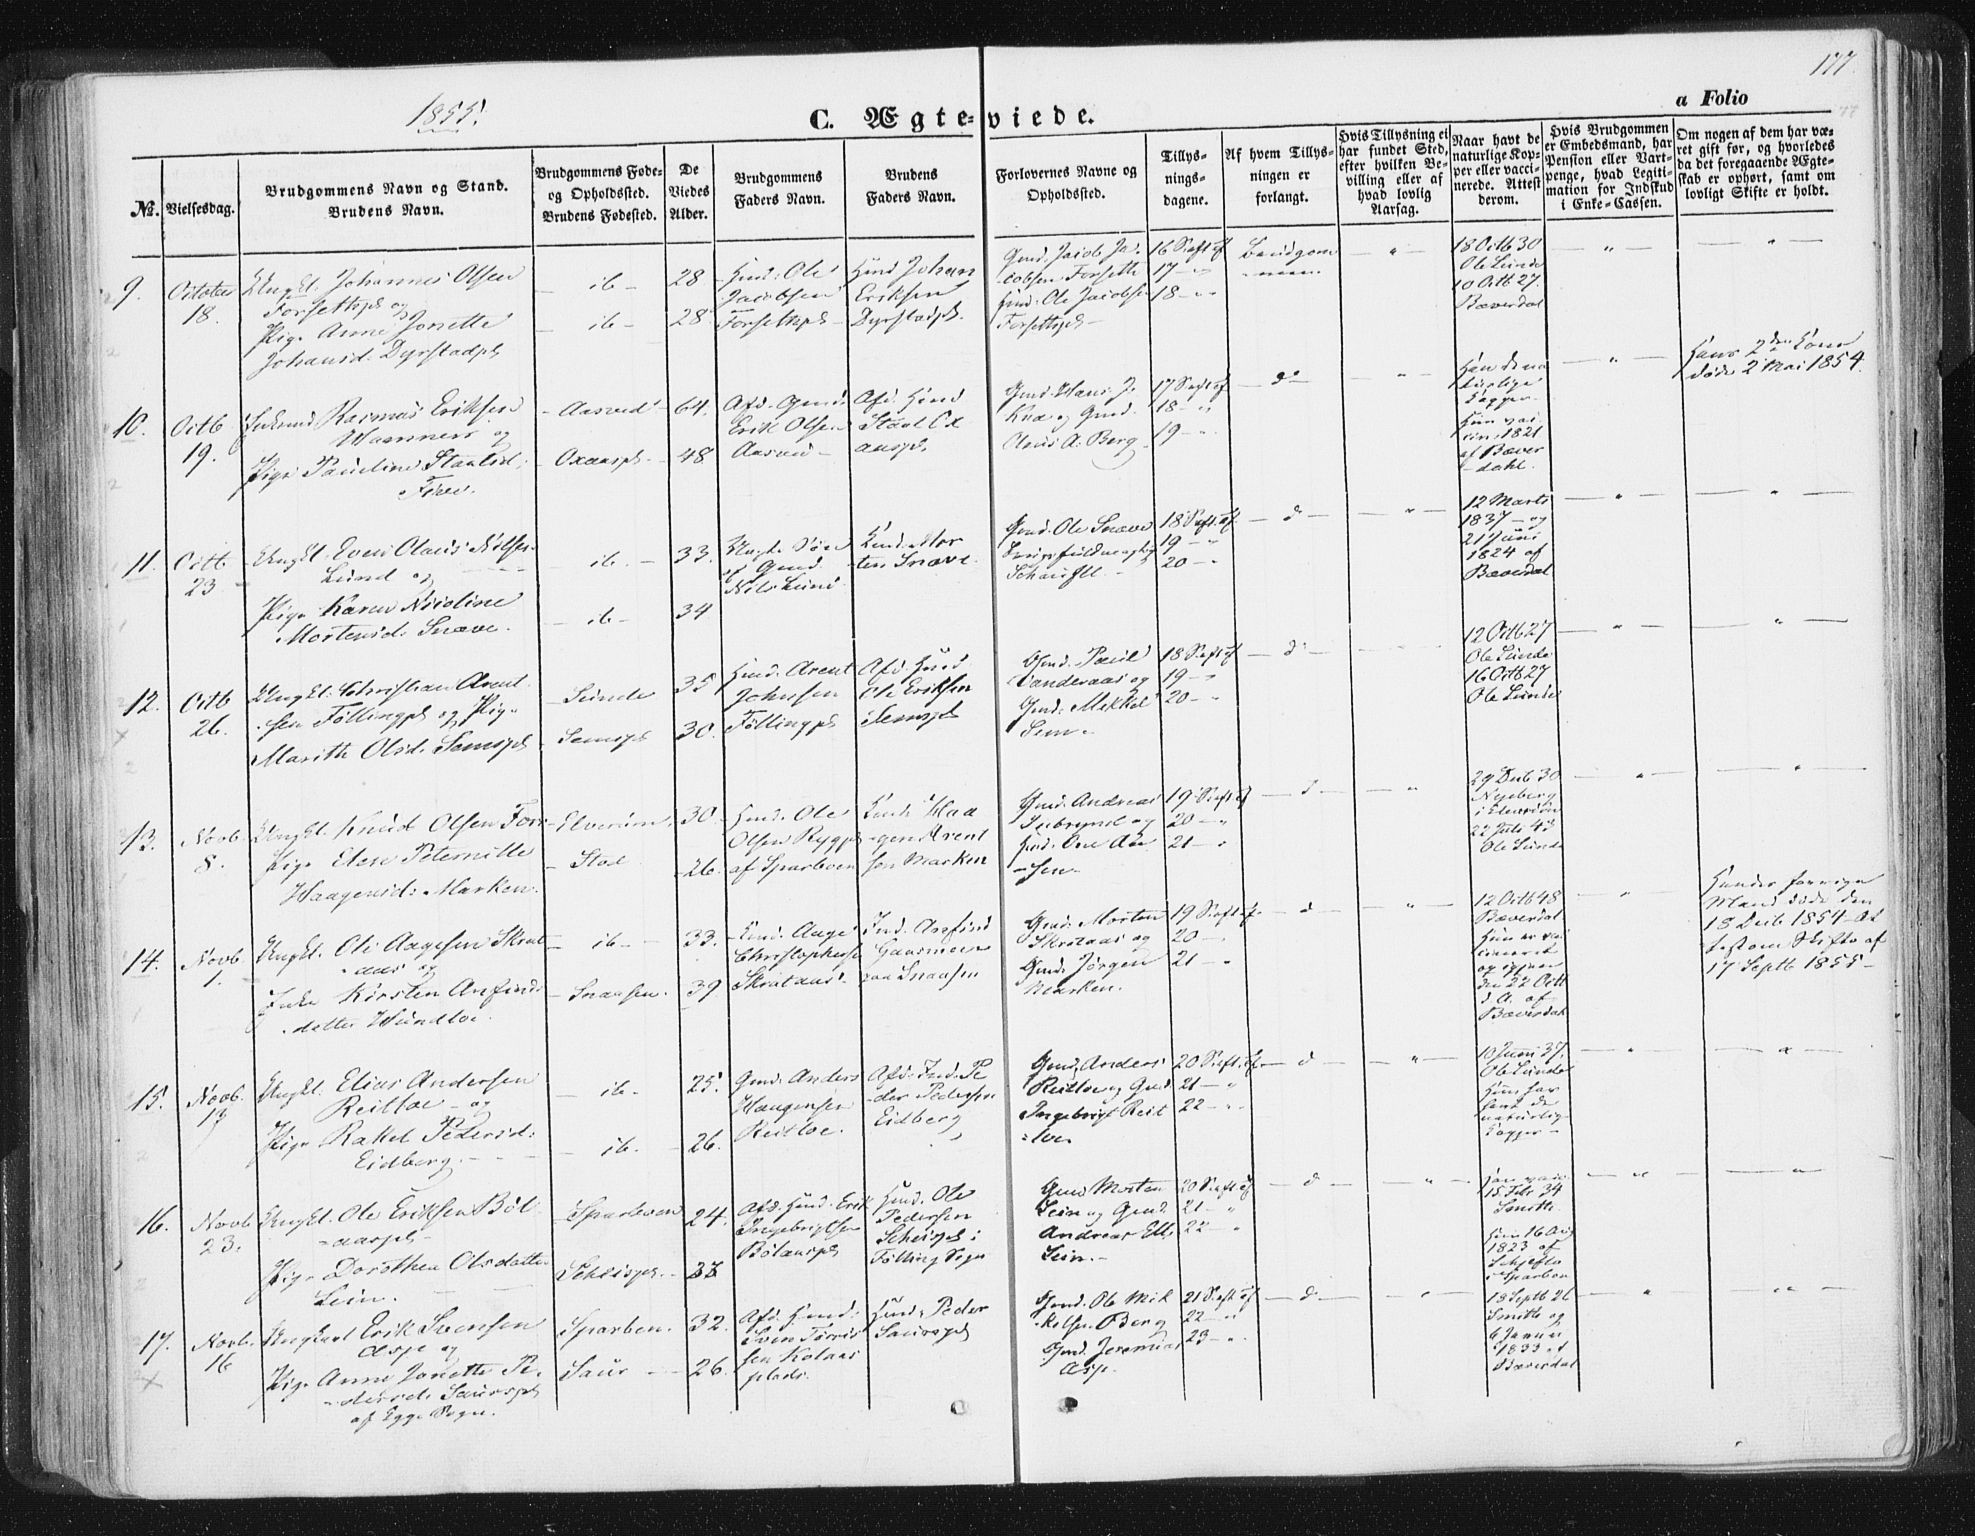 1855.
177.
C. Ægte-viede.
a Folio
№.
Vielsesdag.
Brudgommens Navn og Stand.
Brudens Navn.
Brudgommens Føde-
og Opholdssted.
Brudens Fødested.
De
Viedes
Alder.
Brudgommens
Faders Navn.
Brudens
Faders Navn.
Forlovernes Navne og
Opholdssted.
Tillys-
nings-
dagene.
Af hvem Tillys-
ningen er
forlangt.
Hvis Tillysning ei
har fundet Sted,
efter hvilken Be-
villing eller af
hvad lovlig
Aarsag.
Naar havt de
naturlige Kop-
per eller vacci-
nerede. Attest
derom.
Hvis Brudgommen
er Embedsmand, har
Pension eller Vart-
penge, hvad Legiti-
mation for Indskud
i Enke-Cassen.
Om nogen af dem har væ-
ret gift før, og hvorledes
da det foregaaende Ægte-
skab er ophørt, samt om
lovligt Skifte er holdt.
9.
October
18.
Ungkl. Johannes Olsen
Forsethpl og
Pige Anne Jonette
Johansd. Dyrstadpl
ib
ib
28
28
Huusd. Ole
Jacobsen
Forsethpl
Huusd Johan
Eriksen
Dyrstadpl.
Gmd. Jacob Ja-
cobsen Forseth
Huusd. Ole Jacobsen
Forsethpl
16 S. eft. Tf
17 "
18 "
Brudgom
men
"
18 Octb 30
Ole Lunde
10 Octb 27.
Bæverdal
"
"
10.
Octb
19.
Rasmus Eriksen
og
Pige Pauline Staalsd.
Aasved
Oxaaspl
64.
48
Afd. Gmd
Erik Olsen
Aasved
Afd. Huusd
Staal Ox
aaspl.
Gmd. Hans J.
og Gmd.
Claus A. Berg
17 S. eft. Tf
18 "
19 "
d
"
Han de na
turlige
Kopper
Hun vac
cin 1821
af Bæver
dahl.
"
Hans 2den Kone
døde 2 Mai 1854.
11.
Octb
23
Ungkl. Even Olaus Nilsen
Lund og
Pige Karen Nicoline
Mortensd. Snæve.
ib.
ib
33.
34
Ungk. Søn
af Gmd.
Nils Lund
Huusd. Mor
ten Snæve.
Gmd. Ole Snæve
18 S. eft. Tf
19 "
20 "
d
"
12 Marts
1837 og
21 Juni
1824 af
Bæverdal
"
"
12.
Octb
26.
Ungkl. Christian Arent
sen Føllingpl og Pige
Marith Olsd. Semspl
Lunde
Semspl
35
30.
Huusd. Arent
Johnsen
Føllingpl
Afd. Huusd
Ole Eriksen
Semspl
Gmd. Paul
Vanderaas og
Gmd. Mikkel
Sem
18 S. eft. Tf
19 "
20 "
d
12 Octb 27
Ole Lunde
16 Octb 27
Ole Lunde
"
"
13.
Novb
8.
Ungkl. Knud Olsen Forr
Pige Elen Peternille
Haagensd. Marken.
Elverum
Stod
30.
26.
Huusd. Ole
Olsen Rygpl
af Sparboen
Huusd. Haa
gen Arent
sen Marken
Gmd. Andreas
og
Huusd. One Aa
sen
19 S. eft. Tf
20 "
21 "
d
"
29 Decb 30
Nyeberg
i Elverum
22 Juli 43
Ole Lunde
"
"
14.
Novb
1.
Ungkl. Ole Aagesen Skrat
aas og
Enke Kirsten Arfinds
datter Hundloe.
ib
Snaasen.
33.
39
Huusd. Aage
Christophersen
Skrataas
Ind. Arfind
Snaasen
Gmd. Morten
Skrataas og
Gmd. Jørgen
Marken.
19 S. eft. Tf
20 "
21 "
d
"
12 Octb 48
Bæverdal
Hun er vac
cineret
den 22 Octb
d. A. af
Bæverdal
"
Hendes forrige
Mand døde den
18 Decb 1854 At
test om Skifte af
17 Septb 1855
15.
Novb.
17
Ungkl. Elias Andersen
Reitloe og
Pige Rakel Pedersd.
Eidberg.
ib.
ib.
25.
26.
Gmd. Anders
Haagensen
Reitloe.
Afd. Ind. Pe
der Pedersen
Eidberg
Gmd. Anders
Reitloe og Gmd
Ingebrigt Reit
loe
20 S. eft. Tf.
21 "
22 "
d
"
10 Juni 37.
Ole Lunde
Hun har
havt de
naturlig
Kopper
"
"
16.
Novb
23.
Ungkl. Ole Eriksen Böl
aaspl
Pige Dorothea Olsdatter
Lein.
Sparboen
Scheispl.
24.
33
Afd. Huusd. Erik
Ingebrigtsen
Bölaaspl
Huusd. Ole
Pedersen
Scheispl i
Følling Sogn
Gmd Morten
Lein og Gmd.
Andreas Ell.
Lein.
20 S. eft. Tf
21 "
22 "
d
"
15 Febr 34
Smith
Hun 16 Aug
1823 af
Schjefte
i Sparboen
"
"
17.
Novb.
16
Ungkarl Erik Svensen
Asp og
Pige Anne Jonette Pe
dersd. Saurspl
af Egge Sogn.
Sparben.
Saur
32.
26.
Afd. Huusd.
Sven Torris
sen Kolaas
plads.
Huusd. Peder
Saurspl
Gmd. Ole Mik
kelsen Berg
Gmd. Jeremias
Asp.
21 S. eft. Tf
22 "
23 "
d
"
18 Septb 26
Smith og
6 Januar
1833 af
Bæverdal
"
"